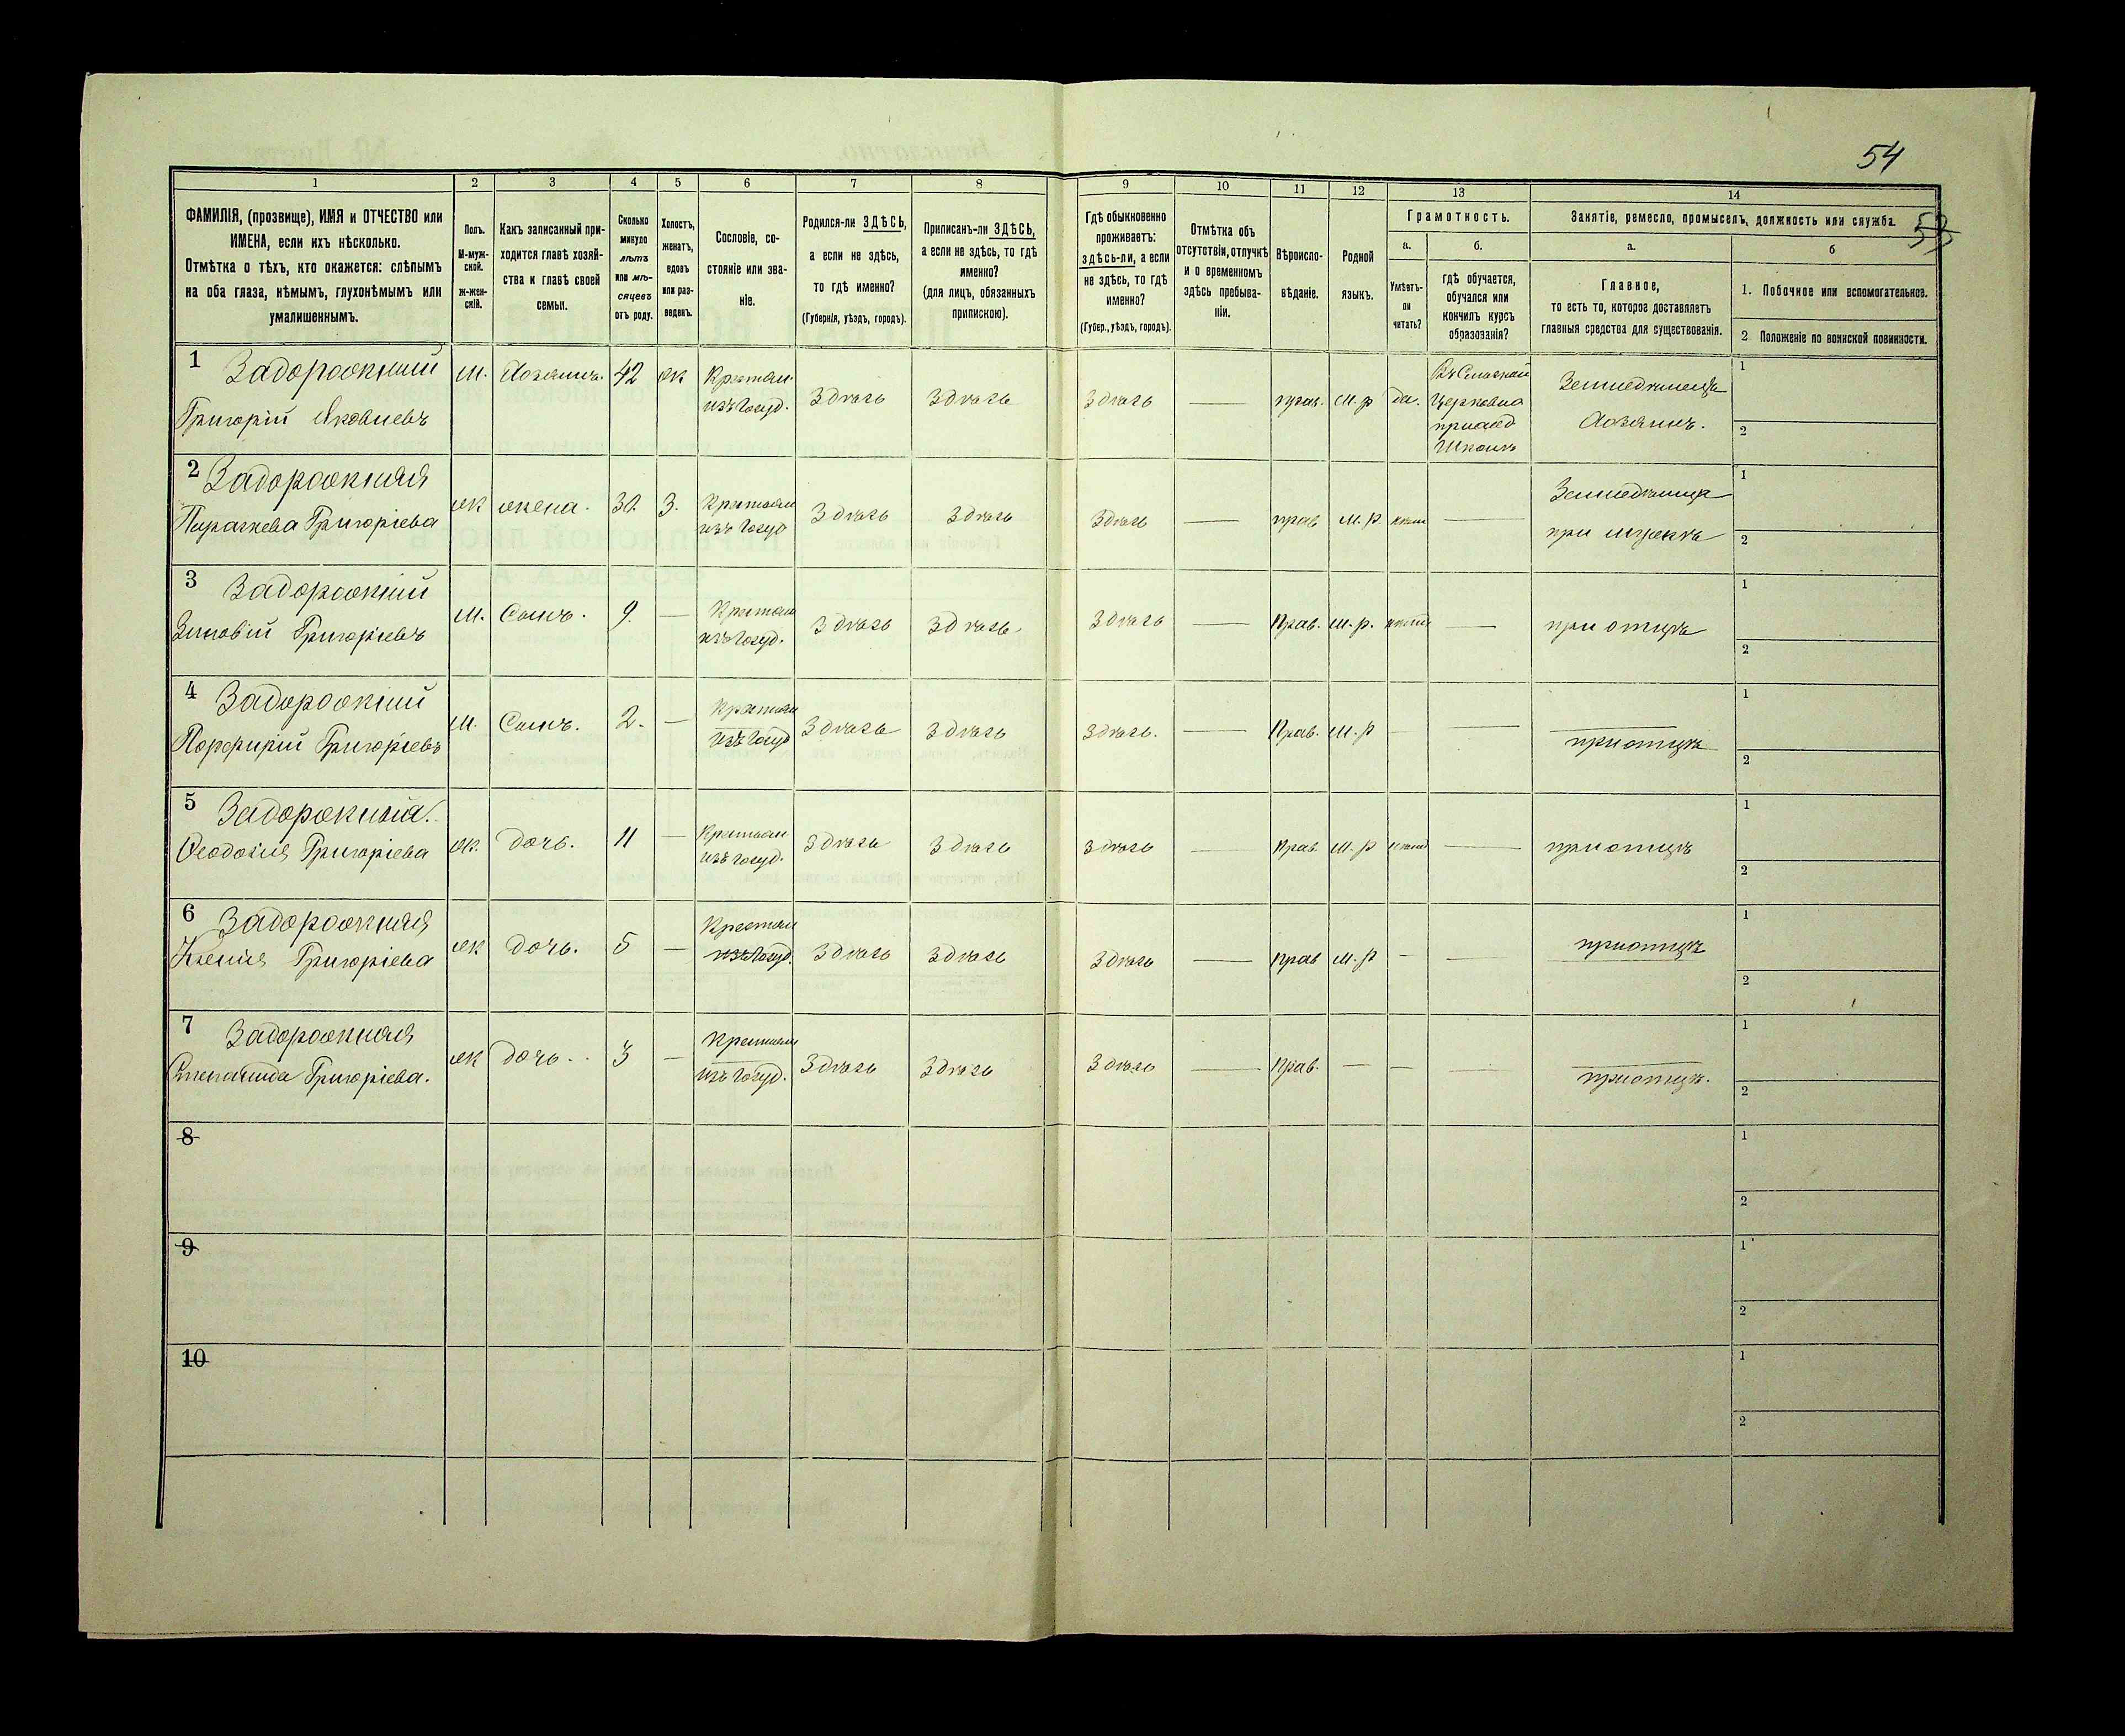 54
53
1 2 3 4 5 6 7 8 9 10 11 12 13 14
ФАМИЛІЯ, (прозвище), ИМЯ и ОТЧЕСТВО или
ИМЕНА, если ихъ нѣсколько.
Отмѣтка о тѣхъ, кто окажется: слѣпымъ
на оба глаза, нѣмымъ, глухонѣмымъ или
умалишеннымъ.
Полъ.
М-муж-
ской.
ж-жен-
скій.
Какъ записанный при-
ходится главѣ хозяй-
ства и главѣ своей
семьи.
Сколько
минуло
лѣтъ
или мѣ-
сяцевъ
отъ роду.
Холостъ,
женатъ,
вдовъ
или раз-
веденъ.
Сословіе, со-
стояніе или зва-
ніе.
Родился-ли ЗДѢСЬ,
а если не здѣсь,
то гдѣ именно?
(Губернія, уѣздъ, городъ).
Приписанъ-ли ЗДѢСЬ,
а если не здѣсь, то гдѣ
именно?
(для лицъ, обязанныхъ
припискою).
Гдѣ обыкновенно
проживаетъ:
здѣсь-ли, а если
не здѣсь, то гдѣ
именно?
(Губер., уѣздъ, городъ).
Отмѣтка объ
отсутствіи, отлучкѣ
и о временномъ
здѣсь пребыва-
ніи.
Вѣроиспо-
вѣданіе.
Родной
языкъ.
Грамотность.
а.
Умѣетъ-
ли
читать?
б.
гдѣ обучается,
обучался или
кончилъ курсъ
образованія?
Занятіе, ремесло, промыселъ, должность или служба.
а.
Главное,
то есть то, которое доставляетъ
главныя средства для существованія.
б
1. Побочное или вспомогательное.
2 Положеніе по воинской повинности.
1 Задорожний
Григорій Яковлевъ
м. Хозяинъ. 42 ж Крестьян.
изъ госуд.
Здѣсь Здѣсь Здѣсь — прав. м. р да.
Въ Сельской
Церковно
приход
Школѣ
Земледѣлецъ
Хозяинъ.
1
2
2 Задорожняя
Григоріева
ж жена. 3. Крестьян
изъ госуд
Здѣсь Здѣсь Здѣсь — прав м. р. —
при мужѣ
1
2
3 Задорожній
Зиновій Григорьевъ
м. Сынъ. 9. — Крестьян
изъ госуд.
Здѣсь Здѣсь Здѣсь — Прав. м. р. —
при отцѣ
1
2
4 Задорожній
Порфирій Григорьевъ
м. Сынъ. 2. — Крестьян
изъ госуд
Здѣсь Здѣсь Здѣсь. — Прав. м. р — —
при отцѣ
1
2
5 Задорожняя.
Ѳеодосія Григоріева
ж. дочь. 11 — Крестьян
изъ госуд.
Здѣсь Здѣсь Здѣсь — Прав. м. р —
при отцѣ
1
2
6 Задорожняя
Ксенія Григоріева
ж дочь. 5 — Крестьян
изъ госуд.
Здѣсь Здѣсь Здѣсь — прав м. р — —
при отцѣ
1
2
7 Задорожняя
Степанида Григоріева.
ж дочь. 3 — Крестьян
изъ госуд.
Здѣсь Здѣсь Здѣсь — Прав. — — —
при отцѣ.
1
2
8
1
2
9
1
2
10
1
2